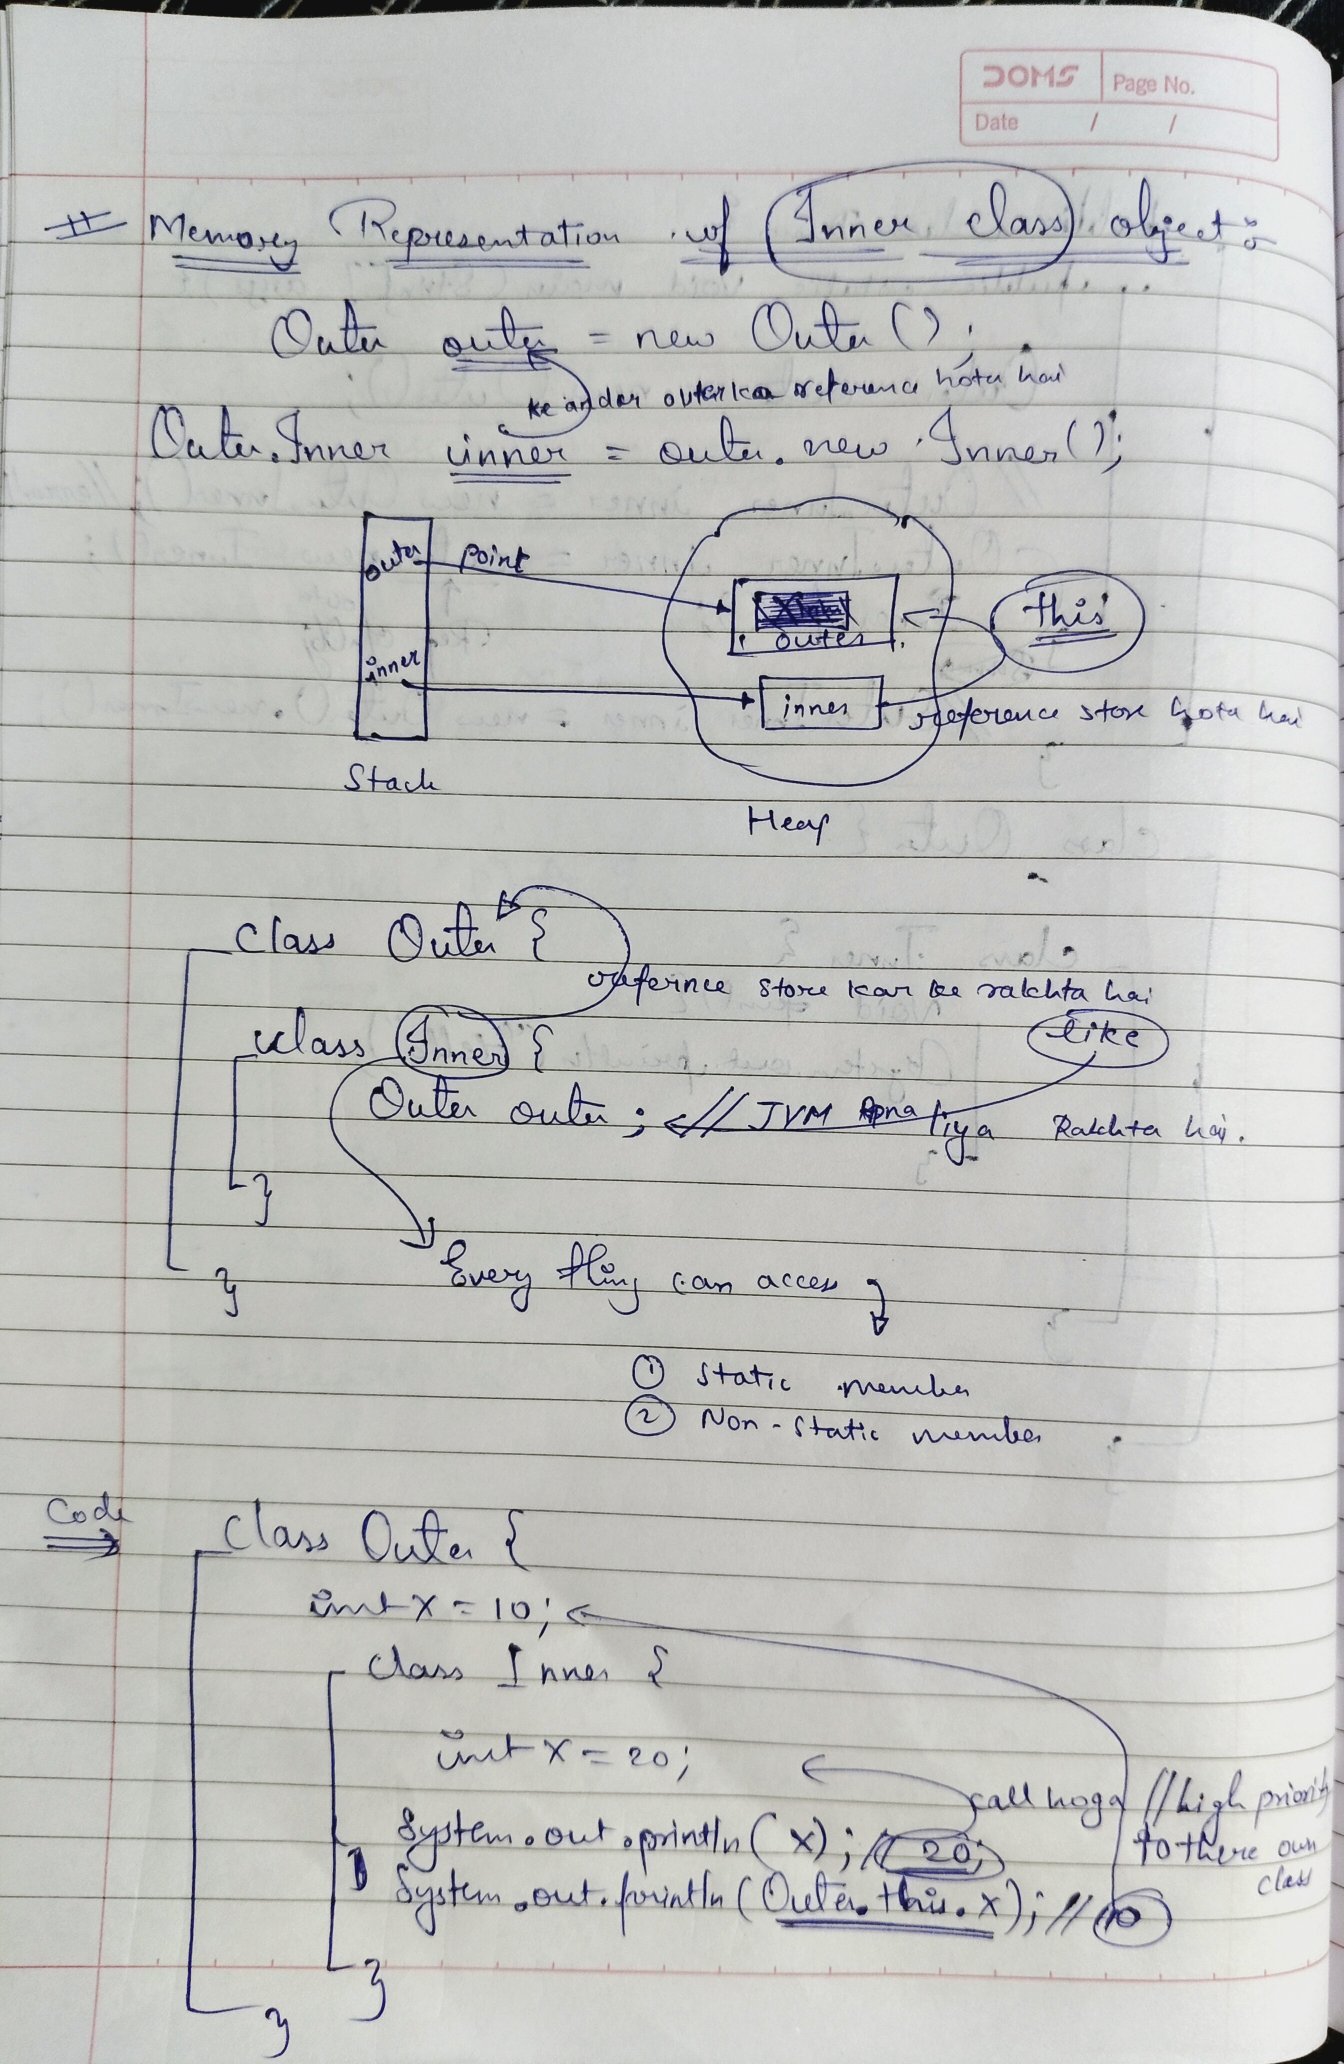 DOMS Page No.
Date / /
# Memory Representation of Inner class object :-
Outer outer = new Outer();
ke andar outer ka reference hota hai
Outer.Inner inner = outer.new Inner();
outer point
this
outer
inner
inner
reference store hota hai
Stack
Heap
class Outer {
refernce store kar ke rakhta hai
class Inner {
like
Outer outer ; // JVM Apna liya Rakhta hai.
}
}
Every thing can access
① Static member
② Non-Static member
Code
class Outer {
int x = 10;
class Inner {
int x = 20;
call hoga // high priority
to there own
class
System.out.println(x); // 20;
System.out.println(Outer.this.x); // 10
}
}